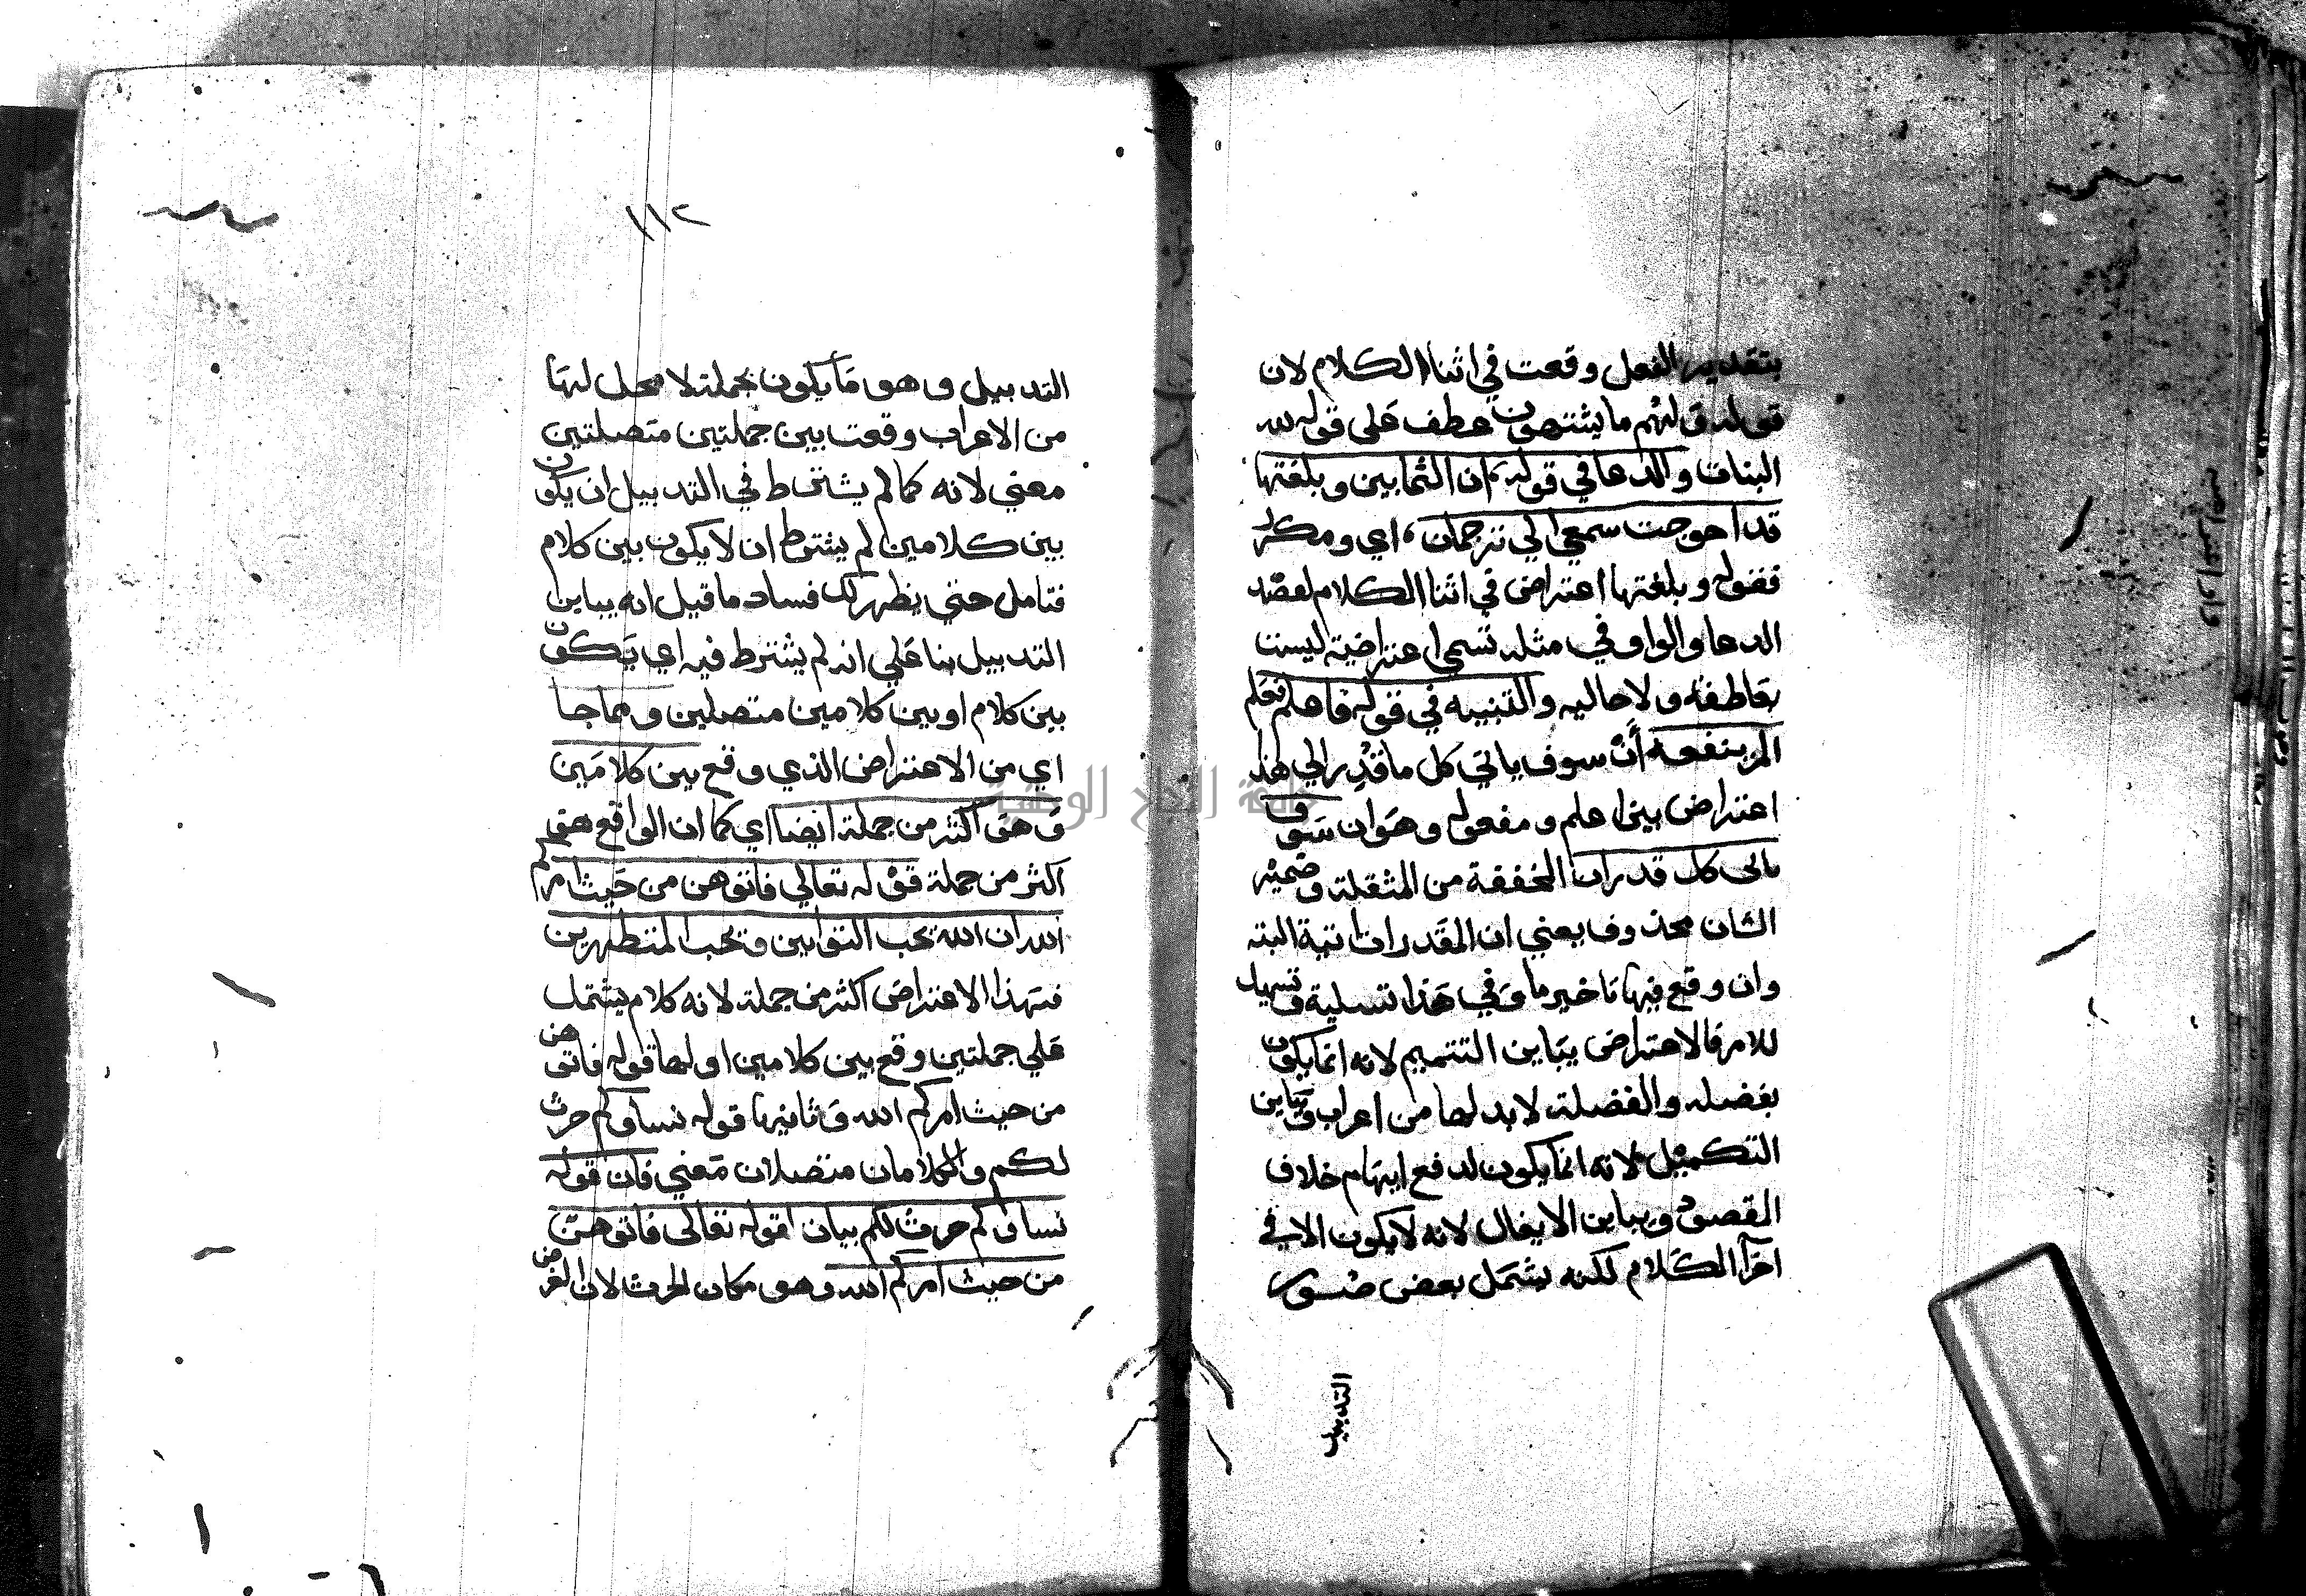 بتقدير الفعل وقعت في اثنا الكلام لان
قوله ولهم ما يشتهون عطف على قوله لله
البنات والدعا في قوله ان الثمانين وبلغتها
قد احوجت سمعي الي ترجمان، اي ومكرر
فقوله وبلغتها اعتراض في اثنا الكلام لقصد
الدعا والواو في مثله تسمى اعتراضية ليست
بعاطفه ولا حاليه والتنبيه في قوله فاعلم فعلم
المرء ينفعه أن سوف ياتي كل ما قدر الي هذا
اعتراض بين اعلم ومفعوله وهو ان سوف
ياتي كل قدر ان المخففة من المثقلة وضمير
الشان محذوف يعني ان المقدر ان اتية البته
وان وقع فيها تاخير ما وفي هذا تسلية وتسهيل
للامر فالاعتراض يباين التتميم لانه انما يكون
بفضله والفضلة لا بد لها من اعراب ويباين
التكميل لانه انما يكون لدفع ايهام خلاف
المقصود ويباين الايغال لانه لا يكون الا في
اخر الكلام لكنه يشمل بعض صور
التدييل
١١٢
التدييل وهو ما يكون بجملة لا محل لها
من الاعراب وقعت بين جملتين متصلتين
معني لانه كما لم يشترط في التدييل ان يكون
بين كلامين لم يشترط ان لا يكون بين كلام
فتامل حتي يظهر لك فساد ما قيل انه يباين
التدييل بنا علي انه لم يشترط فيه اي يكون
بين كلام او بين كلامين متصلين ومما جا
اي من الاعتراض الذي وقع بين كلامين
وهو اكثر من جملة ايضا اي كما ان الواقع هو
اكثر من جملة قوله تعالي فاتوهن من حيث امركم
الله ان الله يحب التوابين ويحب المتطهرين
فهذا الاعتراض اكثر من جملة لانه كلام يشتمل
علي جملتين وقع بين كلامين اولها قوله فاتوهن
من حيث امركم الله وثانيها قوله نساوكم حرث
لكم والكلامان متصلان معني فان قوله
نساوكم حرث لكم بيان لقوله تعالى فاتوهن
من حيث امركم الله وهو مكان الحرث لان الغرض